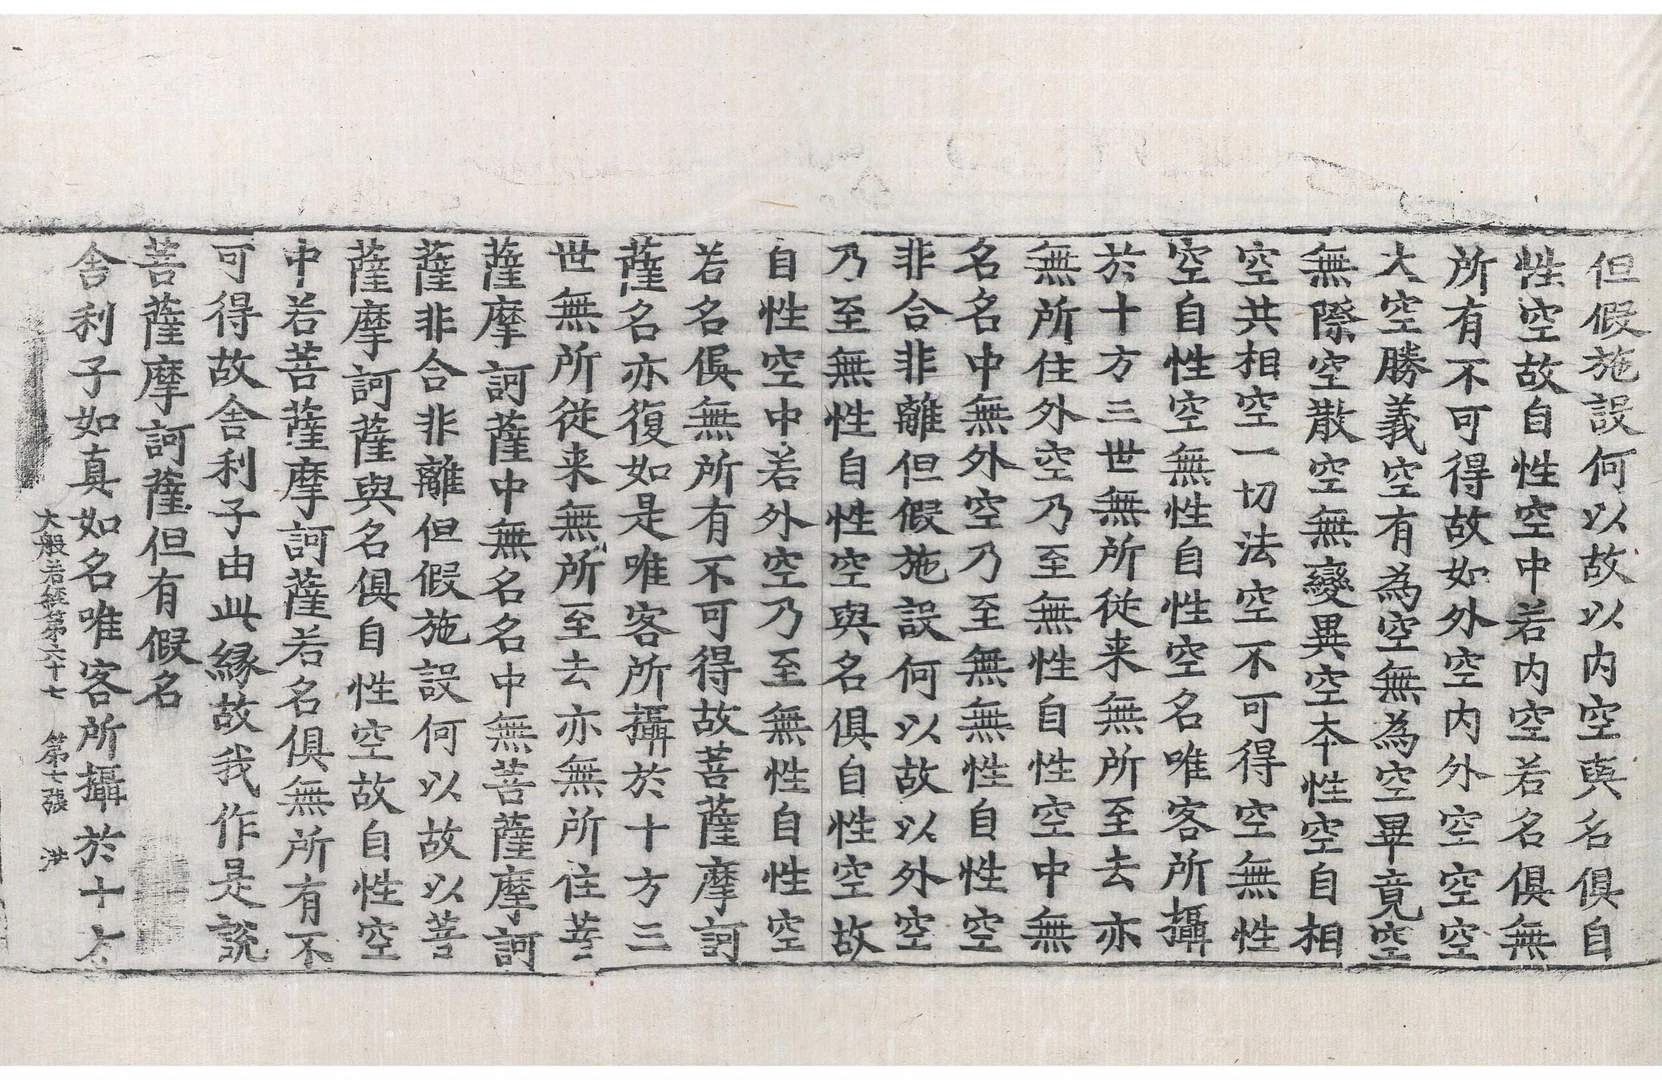 但假施設何以故以内空與名俱自
性空故自性空中若内空若名俱無
所有不可得故如外空内外空空空
大空勝義空有為空無為空畢竟空
無際空散空無變異空本性空自相
空共相空一切法空不可得空無性
空自性空無性自性空名唯客所攝
於十方三世無所從来無所至去亦
無所住外空乃至無性自性空中無
名名中無外空乃至無無性自性空
非合非離但假施設何以故以外空
乃至無性自性空與名俱自性空故
自性空中若外空乃至無性自性空
若名俱無所有不可得故菩薩摩訶
薩名亦復如是唯客所攝於十方三
世無所從来無所至去亦無所住菩
薩摩訶薩中無名名中無菩薩摩訶
薩非合非離但假施設何以故以菩
薩摩訶薩與名俱自性空故自性空
中若菩薩摩訶薩若名俱無所有不
可得故舍利子由此緣故我作是說
菩薩摩訶薩但有假名
舍利子如真如名唯客所攝於十方
大般若經第六十七 第七張 洪